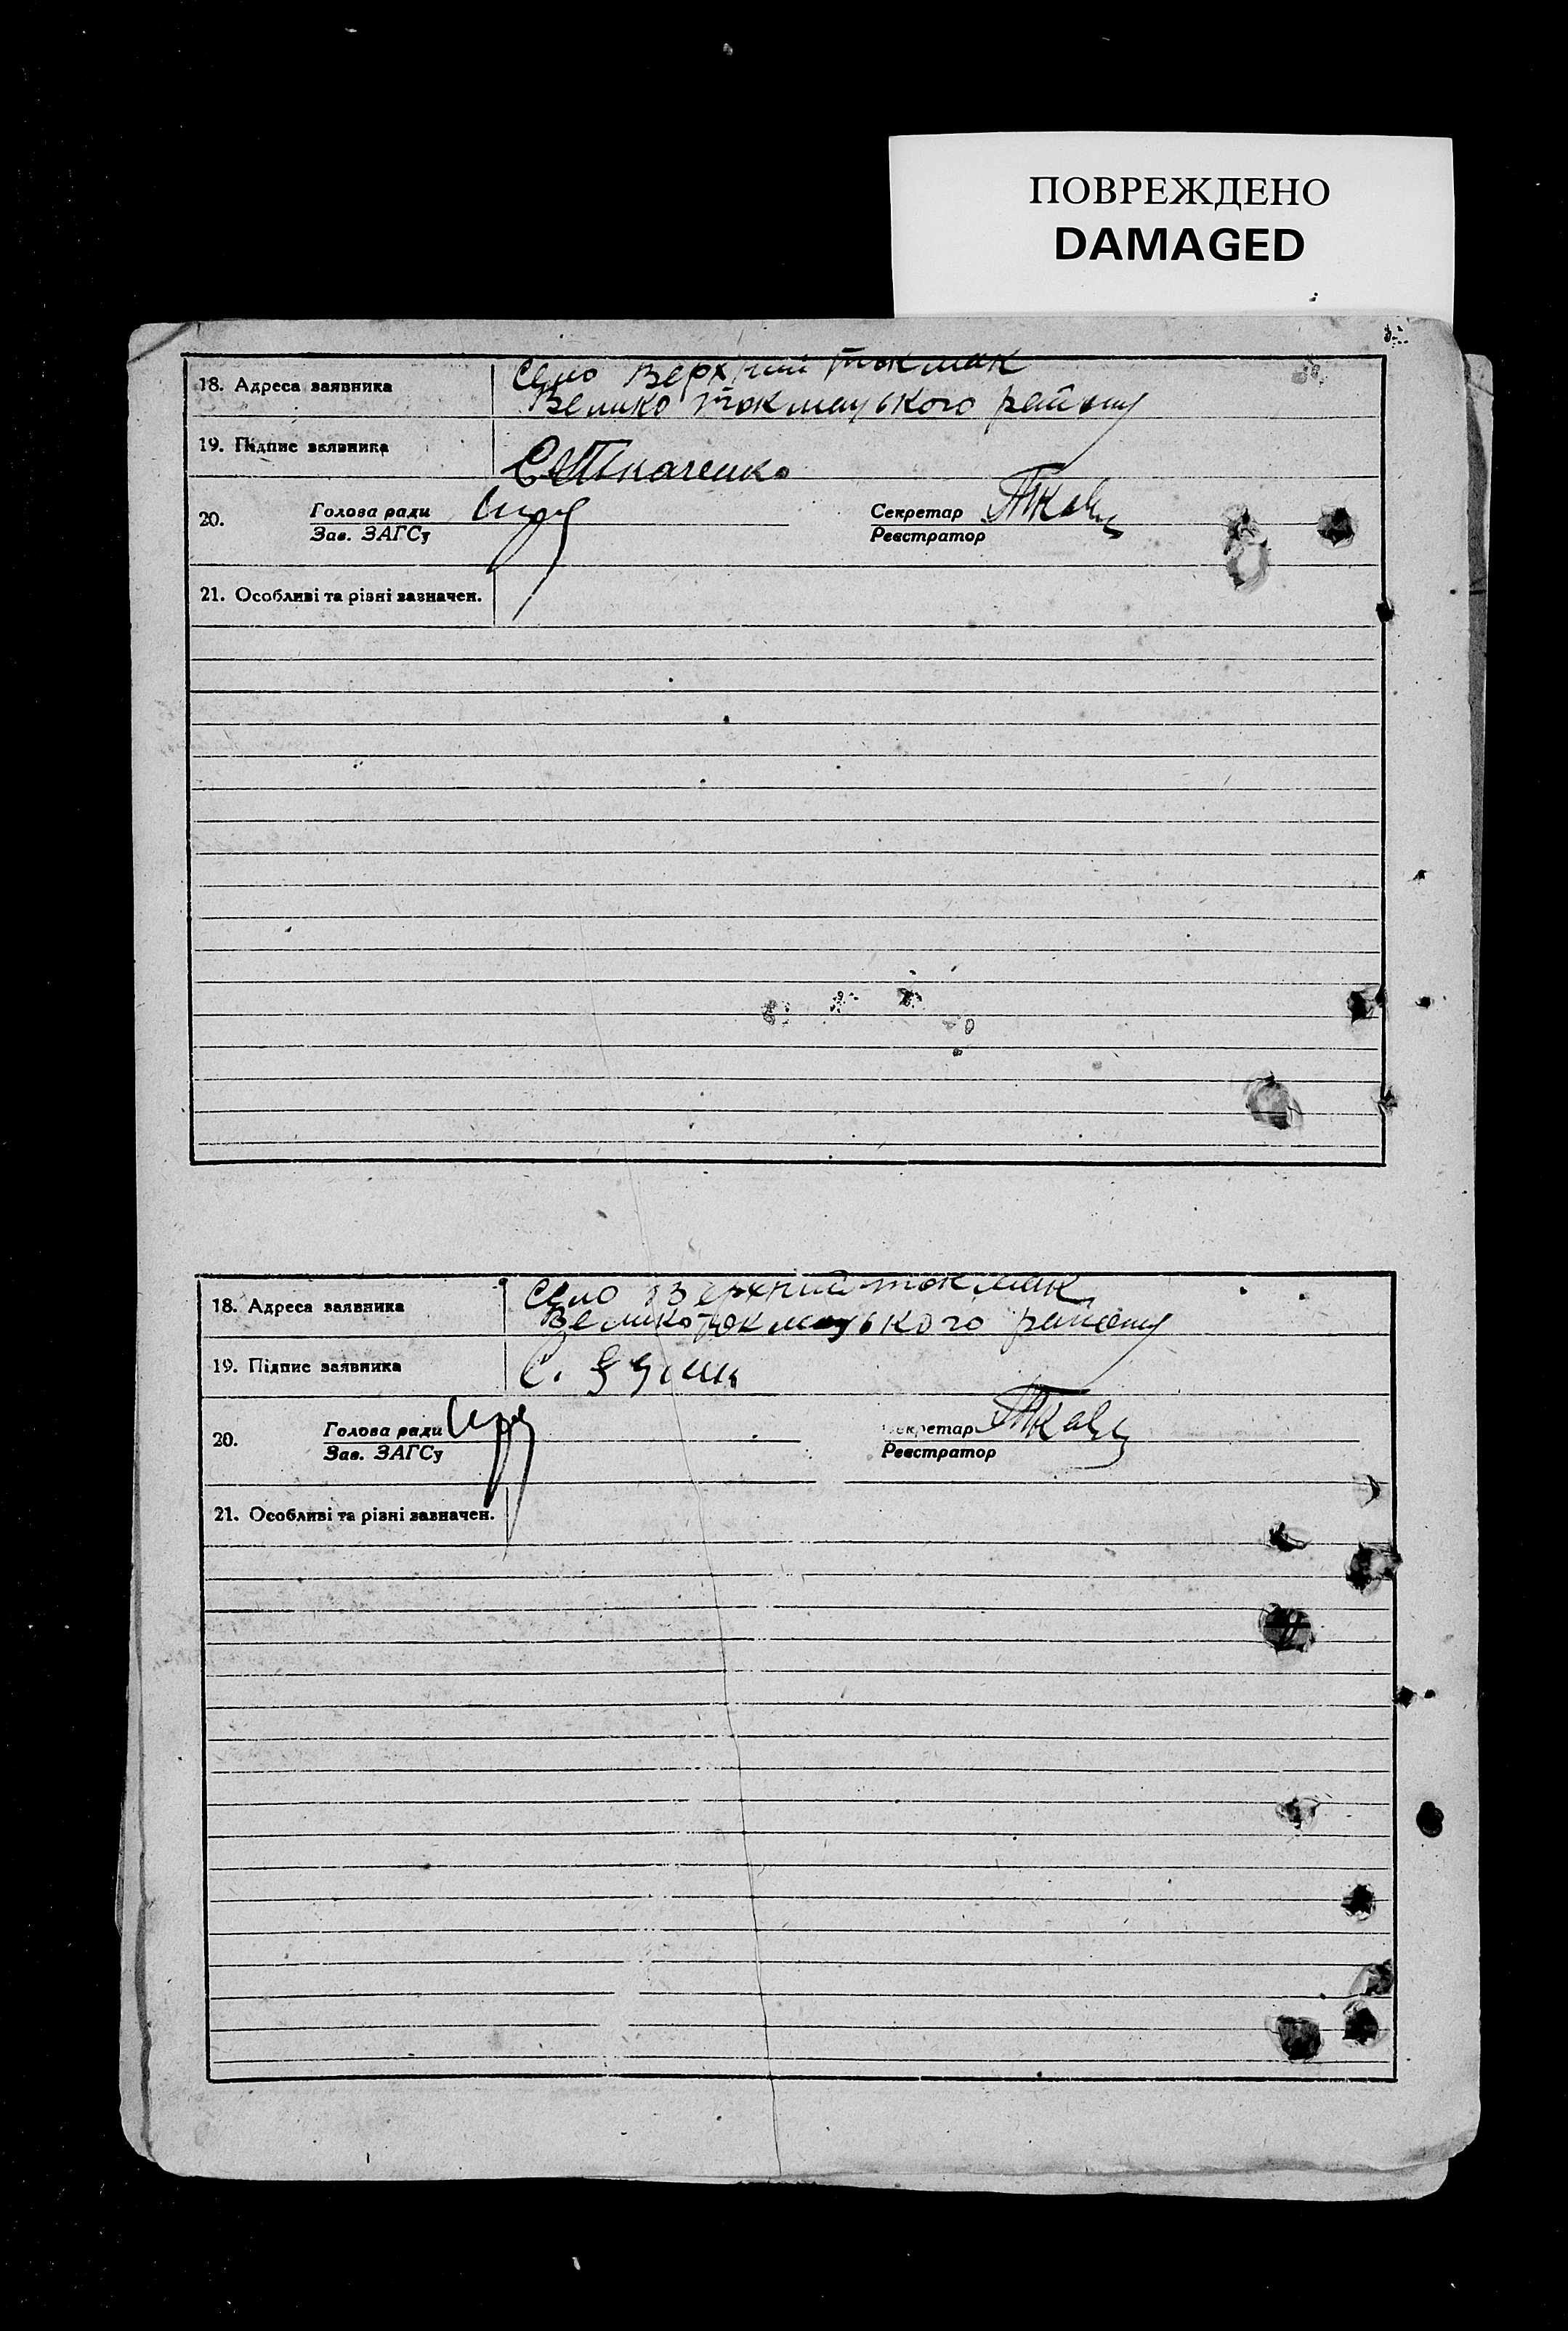 ПОВРЕЖДЕНО
DAMAGED
18. Адреса заявника
Село Верхний токмак
Велико токмацького району
19. Підпис заявника
Ткаченко
20. Голова ради
Зав. ЗАГСу
Секретар
Реєстратор
21. Особливі та різні зазначен.
18. Адреса заявника
Село Верхний токмак
Великотокмацького району
19. Підпис заявника
С.
20. Голова ради
Зав. ЗАГСу
Секретар
Реєстратор
21. Особливі та різні зазначен.